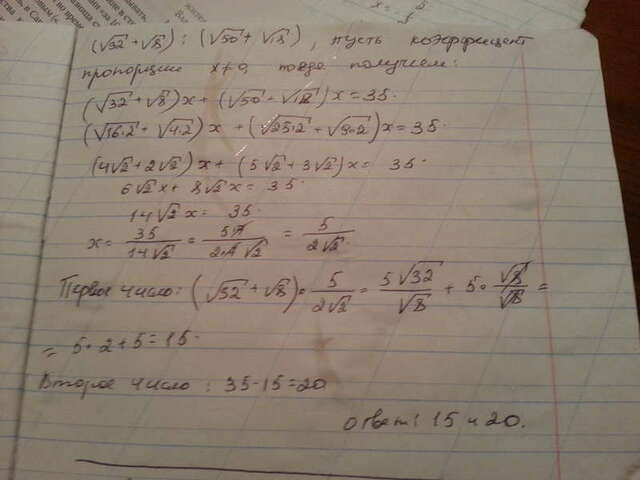 (√32 + √8) : (√50 + √18), пусть коэффицент
пропорции x≠0, тогда получаем:
(√32 + √8)x + (√50 + √18)x = 35.
(√16·2 + √4·2)x + (√25·2 + √9·2)x = 35.
(4√2 + 2√2)x + (5√2 + 3√2)x = 35.
6√2x + 8√2x = 35.
14√2x = 35.
x = 35/14√2 = 5·7/2·7√2 = 5/2√2.
Первое число: (√32 + √8) · 5/2√2 = 5√32/√8 + 5·√8/√8 =
= 5·2+5=15.
Второе число: 35-15=20
ответ: 15 и 20.